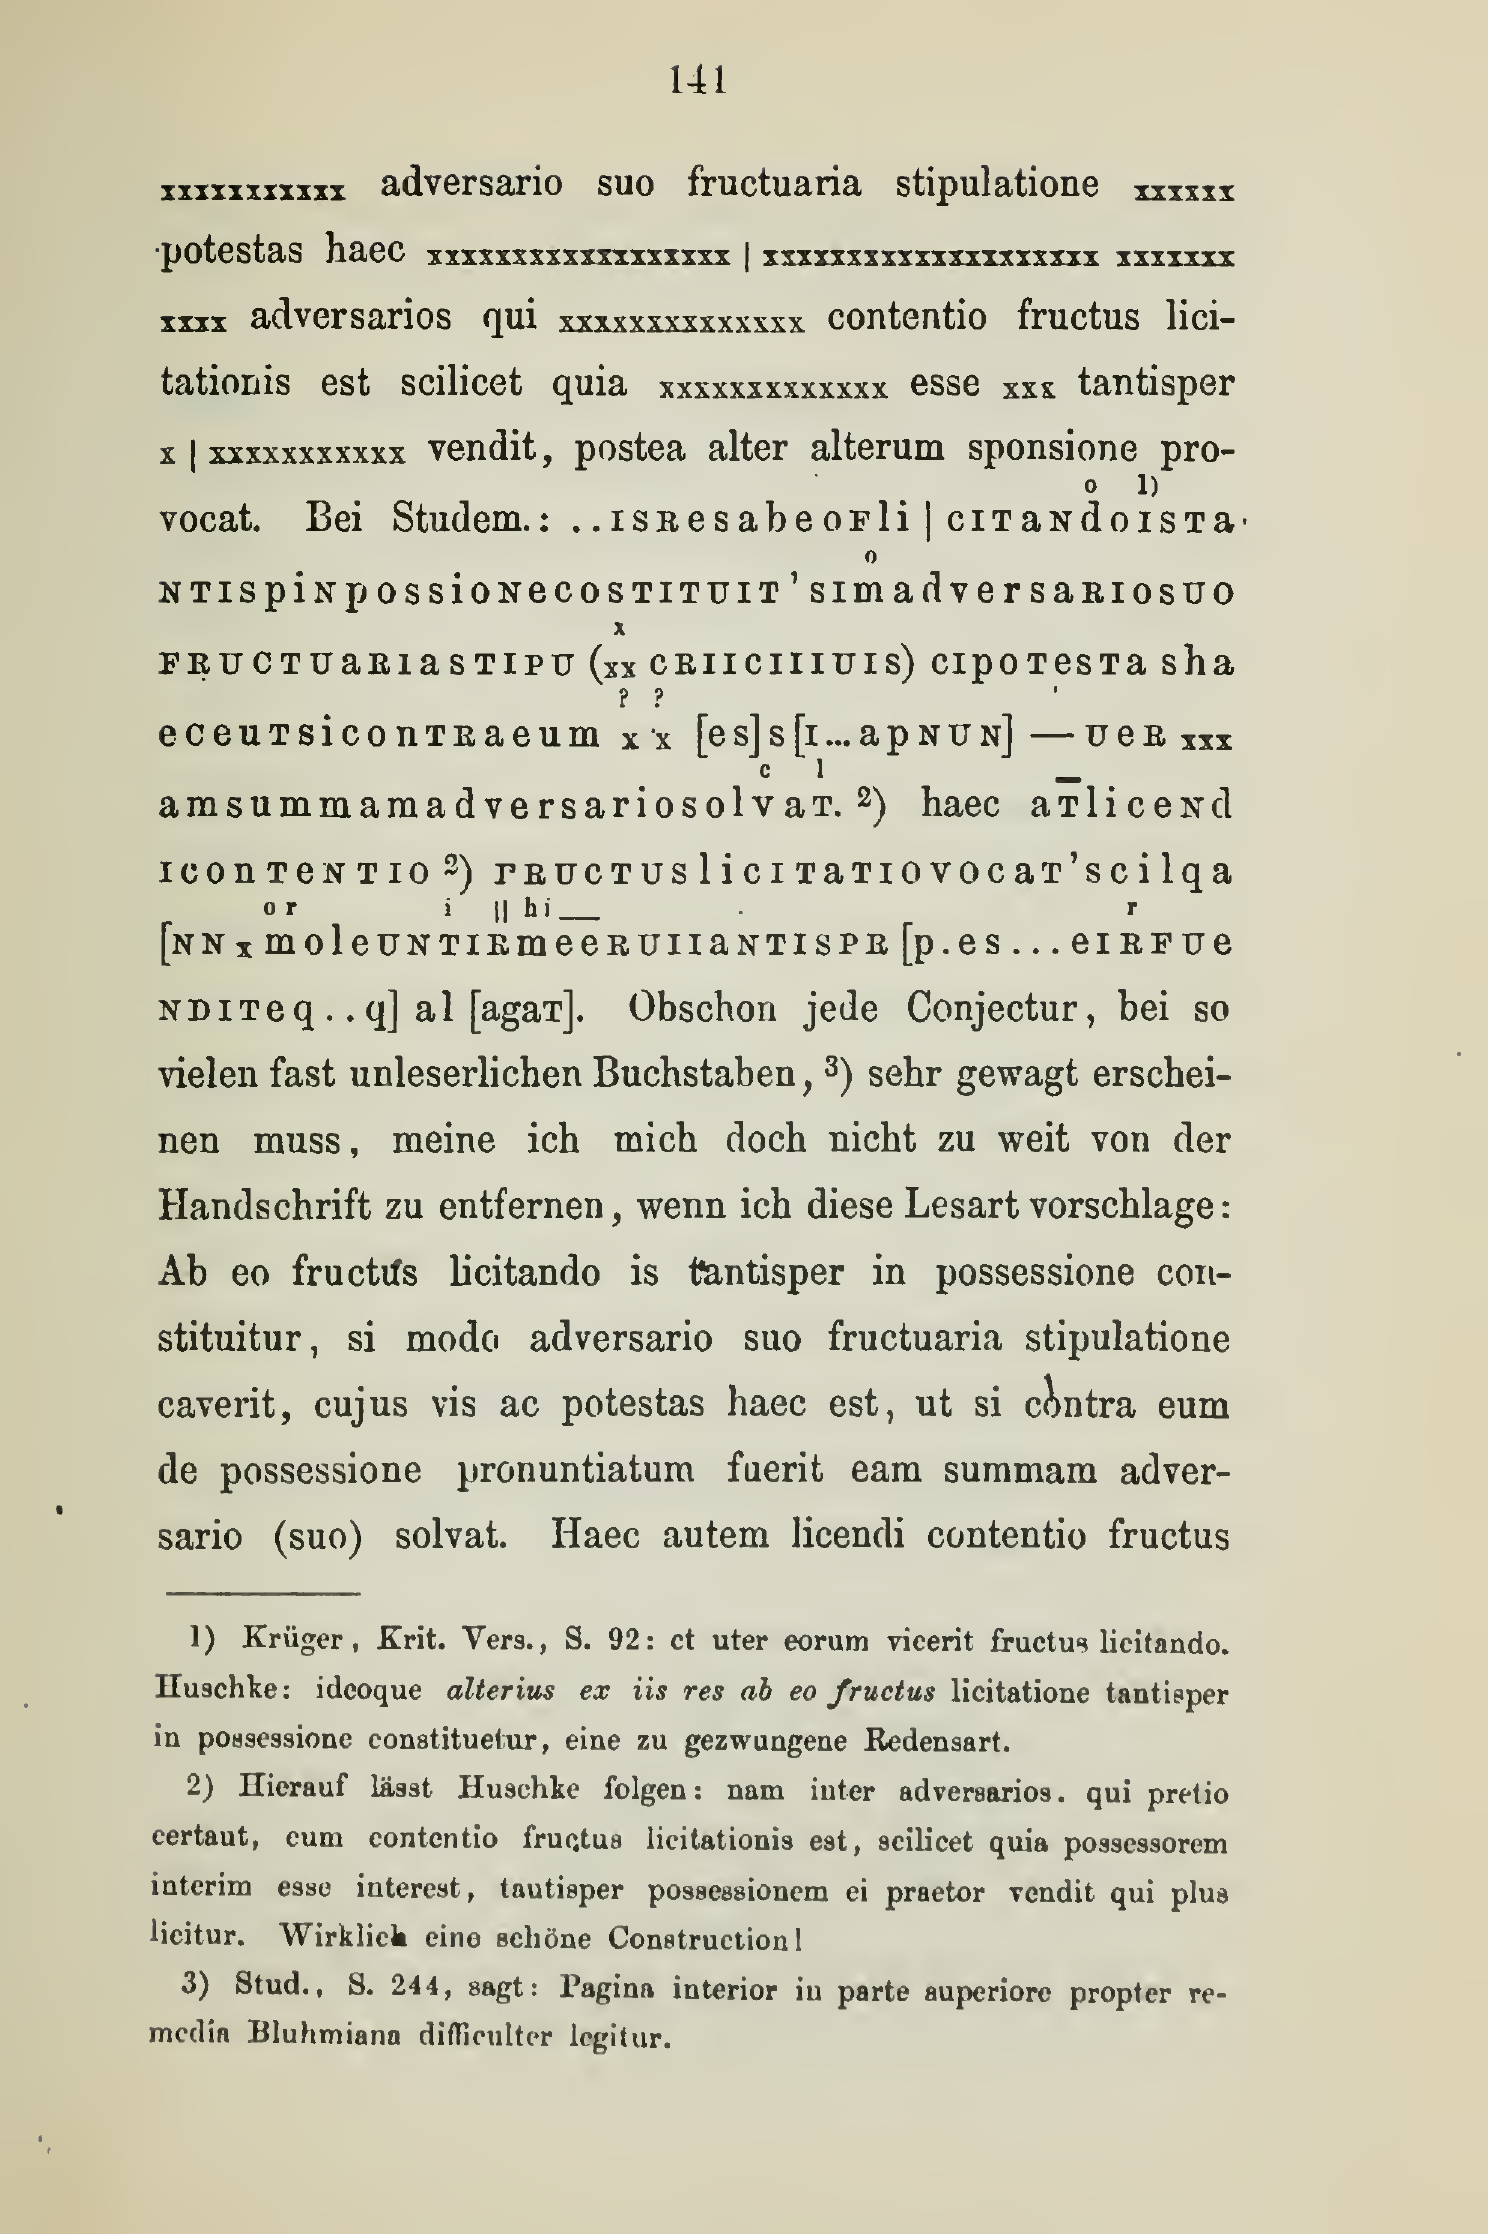 141
xxxxxxxxxxx adversario suo fructuaria stipulatione xxxxxx
potestas haec xxxxxxxxxxxxxxxxxx | xxxxxxxxxxxxxxxxxxxx xxxxxxx
xxxx adversarios qui xxxxxxxxxxxxxx contentio fructus lici-
tationis est scilicet quia xxxxxxxxxxxxx esse xxx tantisper
x | xxxxxxxxxxx vendit, postea alter alterum sponsione pro-
o 1)
vocat. Bei Studem.: ..ISResabeoFli | cITaNdoISTa
o
NTISpiNpossioNecoSTITUIT'sImadversaRIosUO
x
FRUCTUaRIasTIPU (xx cRIICIIIUIS) cIpoTesTa sha
? ?
eceuTsiconTRaeum x x [es]s[I...apNUN] — UeR xxx
c l
amsummamadversariosolvaT. 2) haec aTliceNd
IconTeNTIO 2) FRUCTUslicITaTIOVOcaT'scilqa
or i || hi r
[NNxmoleUNTIRmeeRUIIaNTISPR[p.es...eIRFUe
NDITeq..q] al [agaT]. Obschon jede Conjectur, bei so
vielen fast unleserlichen Buchstaben, 3) sehr gewagt erschei-
nen muss, meine ich mich doch nicht zu weit von der
Handschrift zu entfernen, wenn ich diese Lesart vorschlage:
Ab eo fructus licitando is tantisper in possessione con-
stituitur, si modo adversario suo fructuaria stipulatione
caverit, cujus vis ac potestas haec est, ut si contra eum
de possessione pronuntiatum fuerit eam summam adver-
sario (suo) solvat. Haec autem licendi contentio fructus
1) Krüger, Krit. Vers., S. 92: et uter eorum vicerit fructus licitando.
Huschke: ideoque alterius ex iis res ab eo fructus licitatione tantisper
in possessione constituetur, eine zu gezwungene Redensart.
2) Hierauf lässt Huschke folgen: nam inter adversarios. qui pretio
certant, cum contentio fructus licitationis est, scilicet quia possessorem
interim esse interest, tantisper possessionem ei praetor vendit qui plus
licitur. Wirklich eine schöne Construction!
3) Stud., S. 244, sagt: Pagina interior in parte superiore propter re-
media Bluhmiana difficulter legitur.